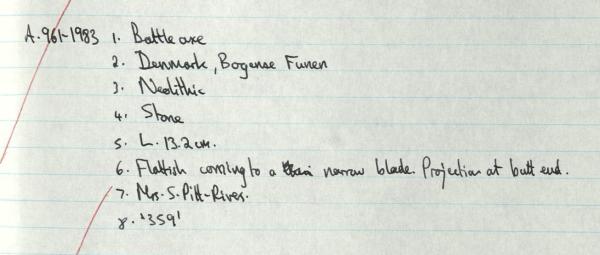 A.961-1983 1. Battle axe
2. Denmark, Bogense Funen
3. Neolithic
4. Stone
5. L. 13.2 cm.
6. Flattish coming to a narrow blade. Projection at butt end.
7. Mrs. S. Pitt-Rivers.
8. '359'